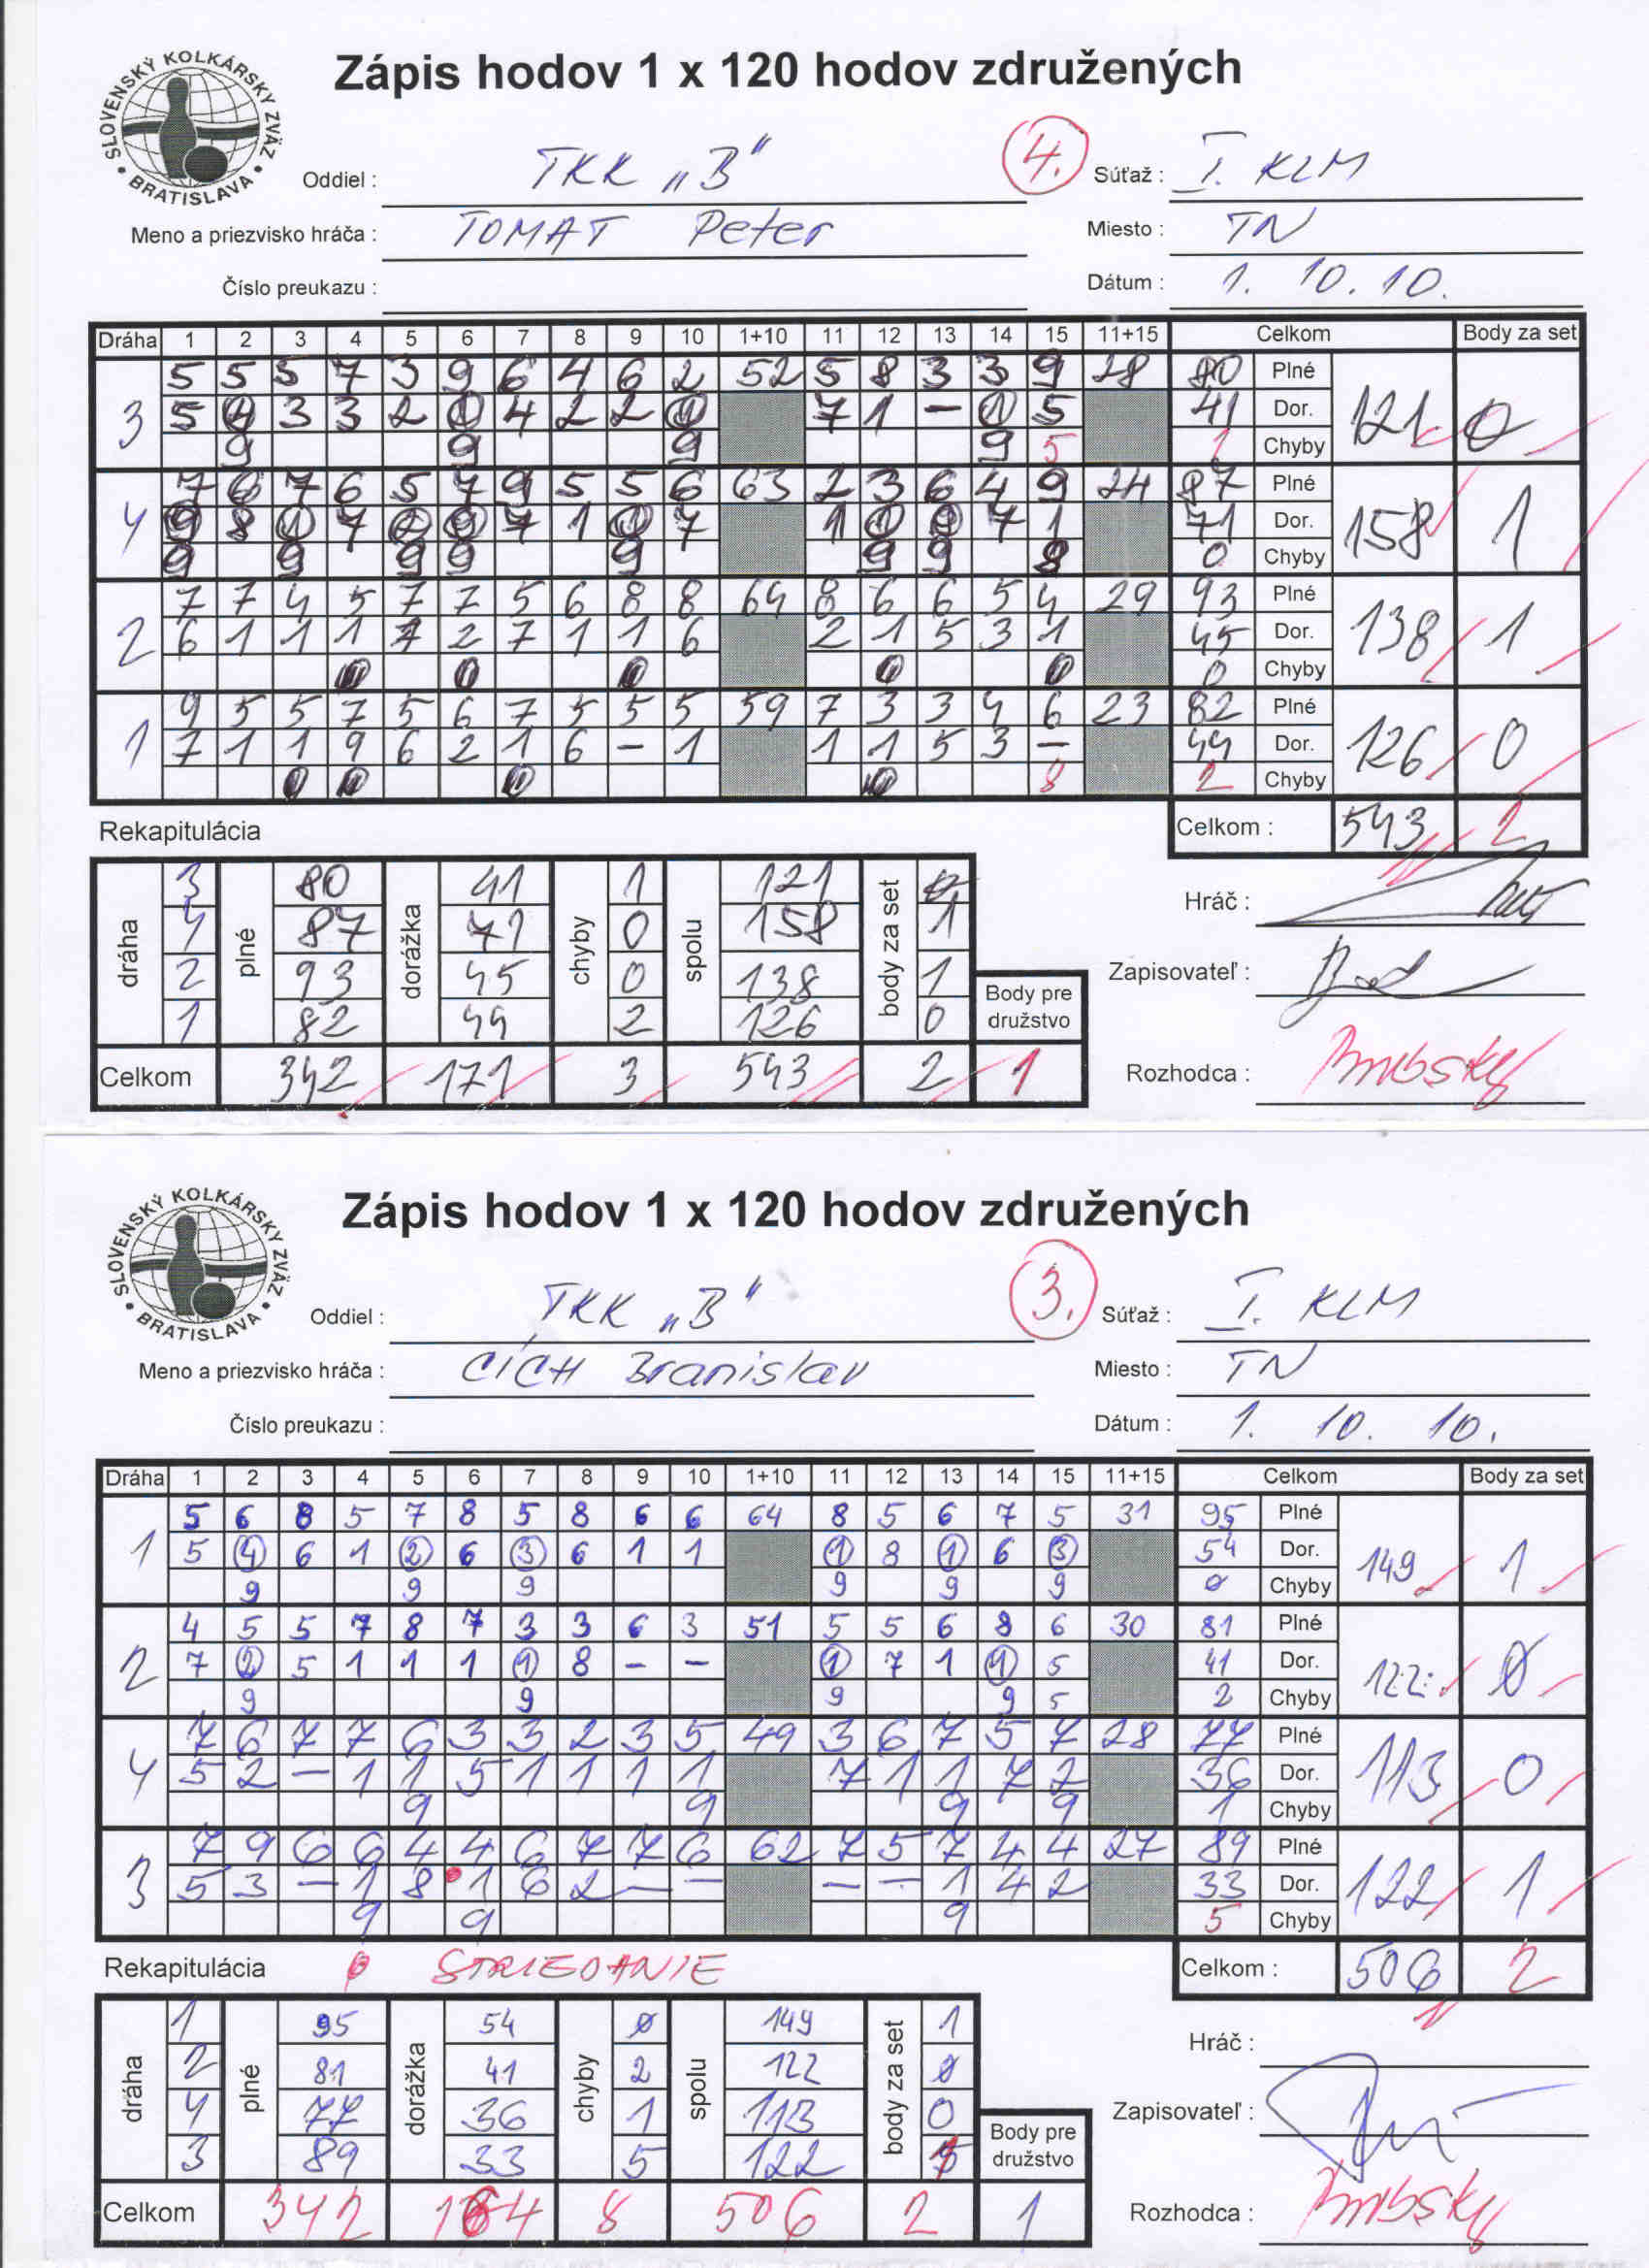 Zápis hodov 1 x 120 hodov združených
SLOVENSKÝ KOLKÁRSKY ZVÄZ • BRATISLAVA •
4.
Oddiel : TKK „B" Súťaž : I. KLM
Meno a priezvisko hráča : TOMAT Peter Miesto : TN
Číslo preukazu : Dátum : 1. 10. 10.
Dráha 1 2 3 4 5 6 7 8 9 10 1+10 11 12 13 14 15 11+15 Celkom Body za set
3 5 5 5 7 3 9 6 4 6 2 52 5 8 3 3 9 28 80 Plné 121 0
5 4 3 3 2 1 4 2 2 1 7 1 - 1 5 41 Dor.
9 9 9 9 5 1 Chyby
4 7 6 7 6 5 7 9 5 5 6 63 2 3 6 4 9 24 87 Plné 158 1
8 7 7 1 7 1 7 1 71 Dor.
9 9 9 9 9 9 9 8 0 Chyby
2 7 7 4 5 7 7 5 6 8 8 64 8 6 6 5 4 29 93 Plné 138 1
6 1 1 1 7 2 7 1 1 6 2 1 5 3 1 45 Dor.
0 Chyby
1 9 5 5 7 5 6 7 5 5 5 59 7 3 3 4 6 23 82 Plné 126 0
7 1 1 9 6 2 1 6 - 1 1 1 5 3 - 44 Dor.
8 2 Chyby
Rekapitulácia Celkom : 543 2
dráha plné dorážka chyby spolu body za set
3 80 41 1 121 0
4 87 71 0 158 1
2 93 45 0 138 1
1 82 44 2 126 0
Body pre družstvo
Celkom 342 171 3 543 2 1
Hráč :
Zapisovateľ :
Rozhodca :
Zápis hodov 1 x 120 hodov združených
SLOVENSKÝ KOLKÁRSKY ZVÄZ • BRATISLAVA •
3.
Oddiel : TKK „B" Súťaž : I. KLM
Meno a priezvisko hráča : CÍCH Branislav Miesto : TN
Číslo preukazu : Dátum : 1. 10. 10.
Dráha 1 2 3 4 5 6 7 8 9 10 1+10 11 12 13 14 15 11+15 Celkom Body za set
1 5 6 8 5 7 8 5 8 6 6 64 8 5 6 7 5 31 95 Plné 149 1
5 4 6 1 2 6 3 6 1 1 1 8 1 6 3 54 Dor.
9 9 9 9 9 9 0 Chyby
2 4 5 5 7 8 7 3 3 6 3 51 5 5 6 8 6 30 81 Plné 122 0
7 2 5 1 1 1 1 8 - - 1 7 1 1 5 41 Dor.
9 9 9 9 5 2 Chyby
4 7 6 7 7 6 3 3 2 3 5 49 3 6 7 5 7 28 77 Plné 113 0
5 2 - 1 1 5 1 1 1 1 7 1 1 7 2 36 Dor.
9 9 9 9 1 Chyby
3 7 9 6 6 4 4 6 7 7 6 62 7 5 7 4 4 27 89 Plné 122 1
5 3 - 1 8 1 6 2 - - - - 1 4 2 33 Dor.
9 9 9 5 Chyby
Rekapitulácia STRIEDANIE Celkom : 506 2
dráha plné dorážka chyby spolu body za set
1 95 54 0 149 1
2 81 41 2 122 0
4 77 36 1 113 0
3 89 33 5 122 1
Body pre družstvo
Celkom 342 164 8 506 2 1
Hráč :
Zapisovateľ :
Rozhodca :